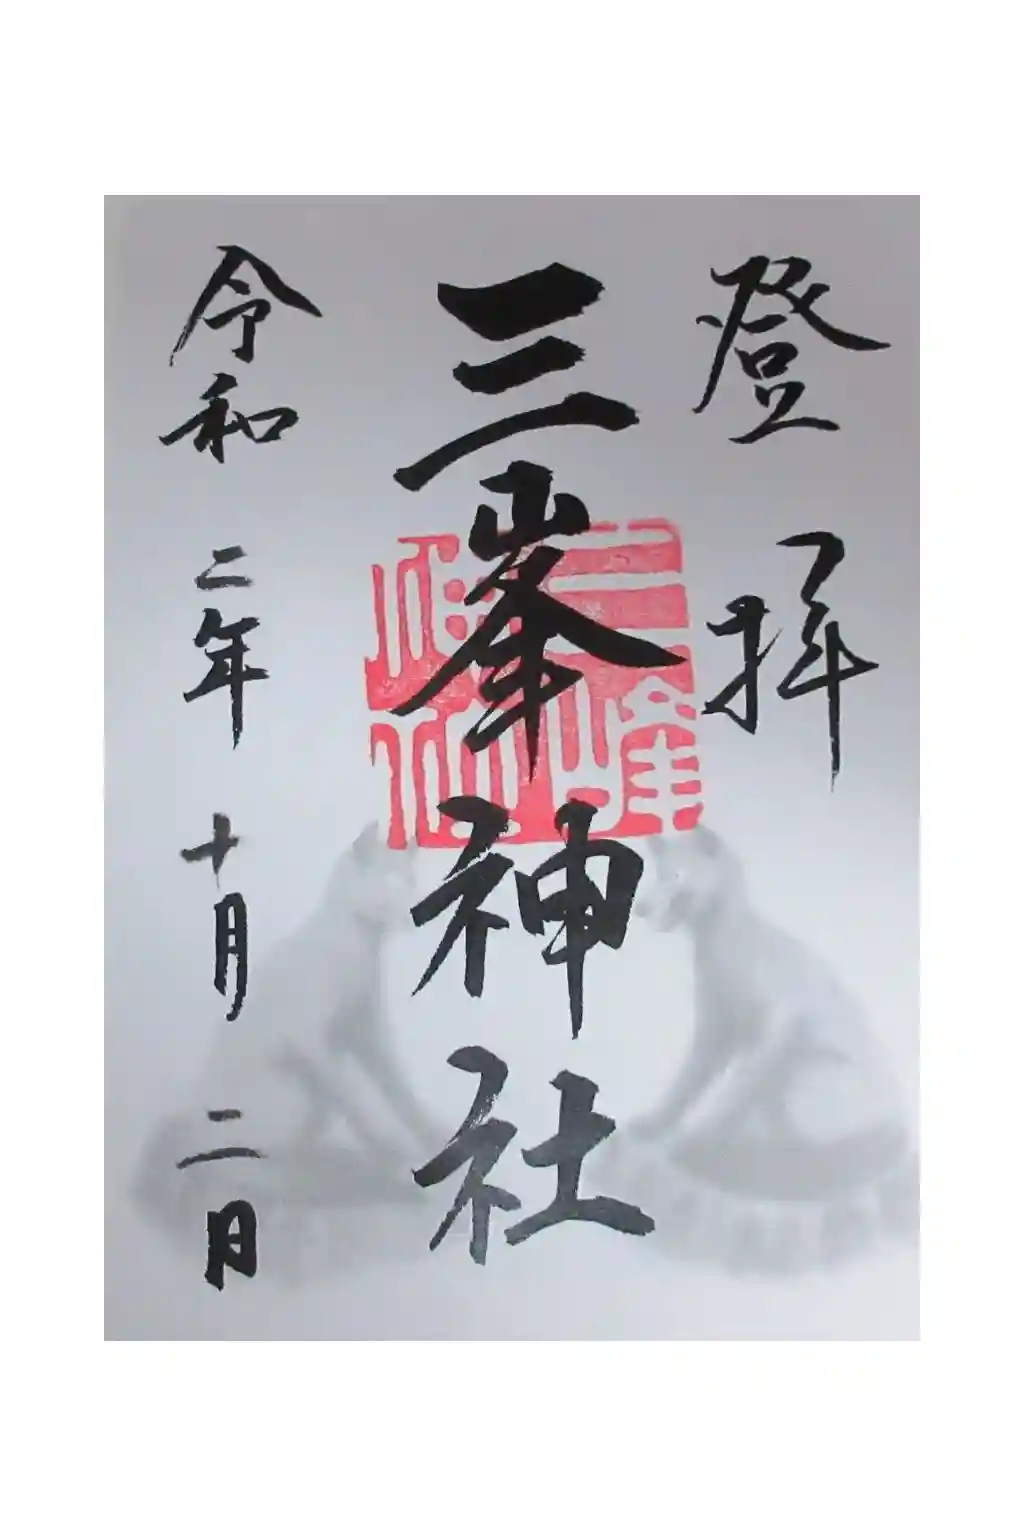 登拝
三峯神社
令和二年十月二日